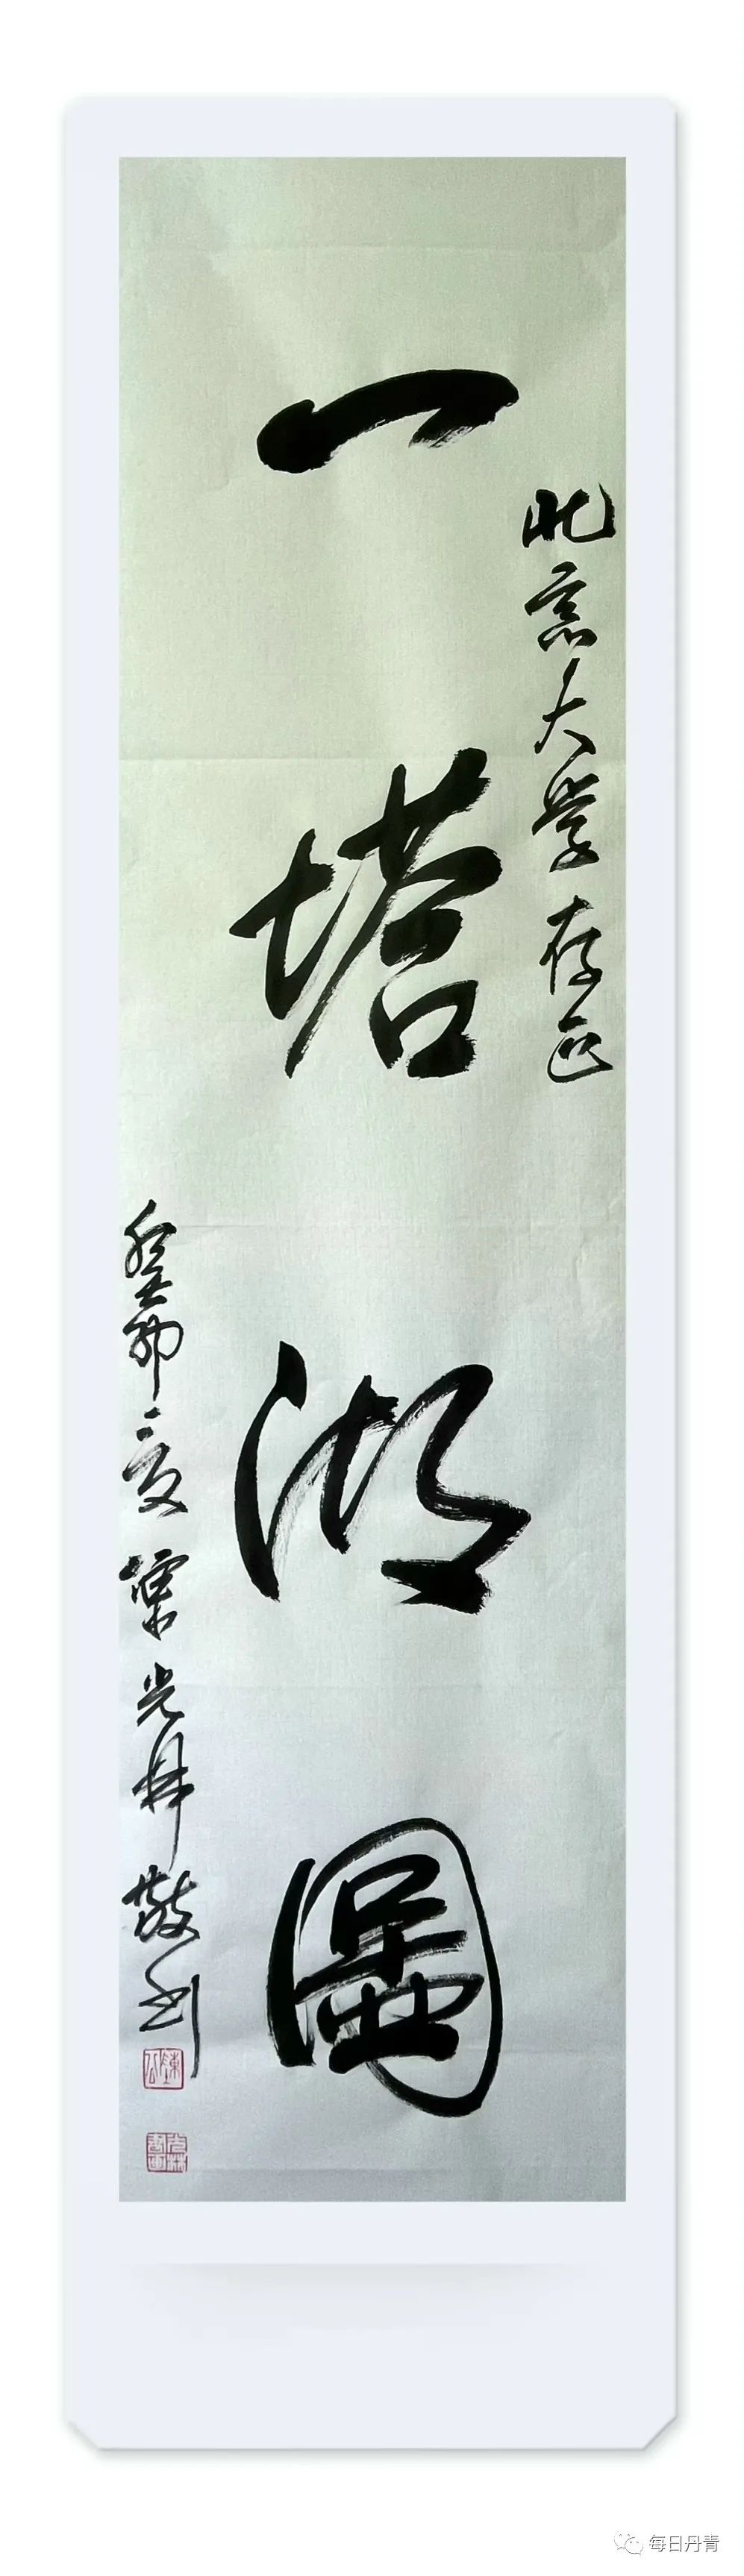 北京大学存正
一塔湖圖
癸卯之夏陳光林敬书
每日丹青